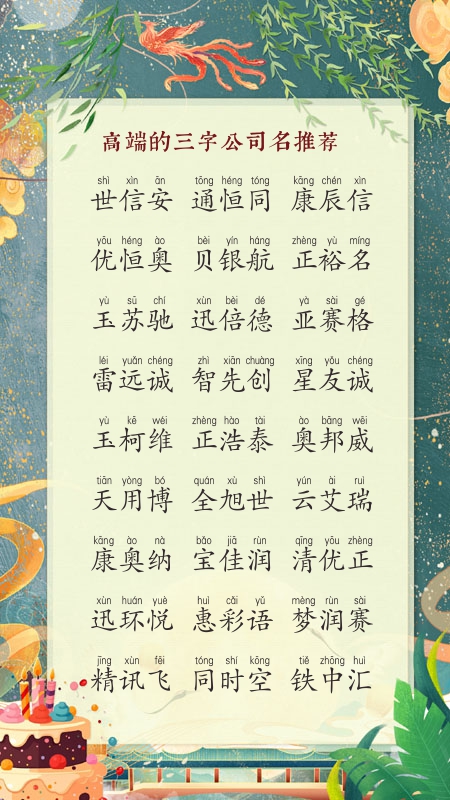 高端的三字公司名推荐
shì xìn ān tōng héng tóng kāng chén xìn
世信安 通恒同 康辰信
yōu héng ào bèi yín háng zhèng yù míng
优恒奥 贝银航 正裕名
yù sū chí xùn bèi dé yà sài gé
玉苏驰 迅倍德 亚赛格
léi yuǎn chéng zhì xiān chuàng xīng yǒu chéng
雷远诚 智先创 星友诚
yù kē wéi zhèng hào tài ào bāng wēi
玉柯维 正浩泰 奥邦威
tiān yòng bó quán xù shì yún ài ruì
天用博 全旭世 云艾瑞
kāng ào nà bǎo jiā rùn qīng yōu zhèng
康奥纳 宝佳润 清优正
xùn huán yuè huì cǎi yǔ mèng rùn sài
迅环悦 惠彩语 梦润赛
jīng xùn fēi tóng shí kōng tiě zhōng huì
精讯飞 同时空 铁中汇